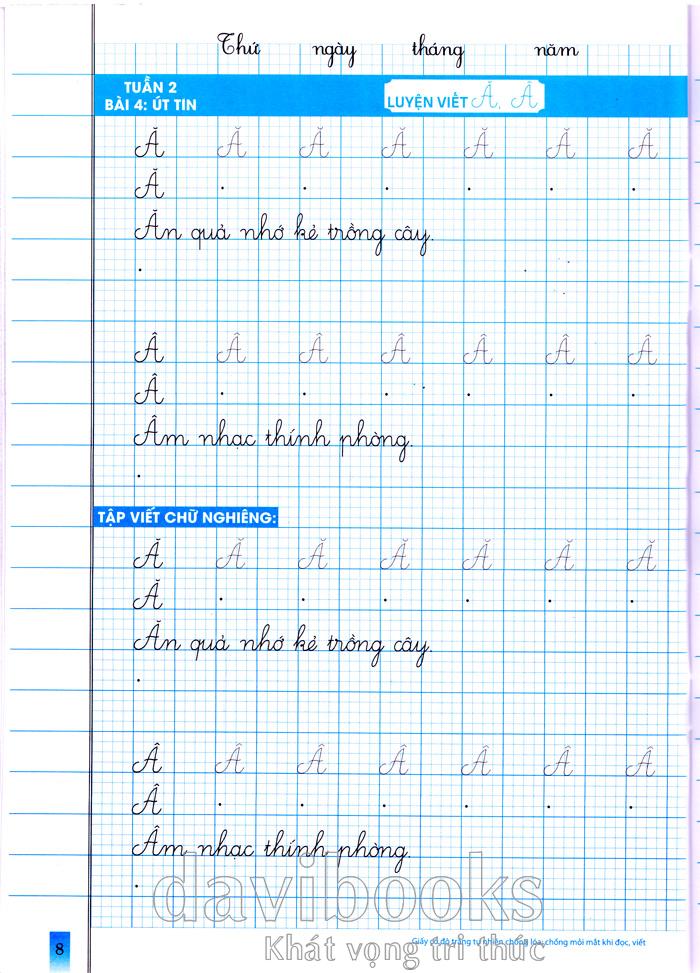 Thứ ngày tháng năm
TUẦN 2
BÀI 4: ÚT TIN
LUYỆN VIẾT Ă, Â
Ă Ă Ă Ă Ă Ă Ă
Ă . . . . . .
Ăn quả nhớ kẻ trồng cây.
.
Â Â Â Â Â Â Â
Â . . . . . .
Âm nhạc thính phòng.
.
TẬP VIẾT CHỮ NGHIÊNG:
Ă Ă Ă Ă Ă Ă Ă
Ă . . . . . .
Ăn quả nhớ kẻ trồng cây.
.
Â Â Â Â Â Â Â
Â . . . . . .
Âm nhạc thính phòng.
.
davibooks
Khát vọng tri thức
8
Giấy có độ trắng tự nhiên chống lóa, chống mỏi mắt khi đọc, viết